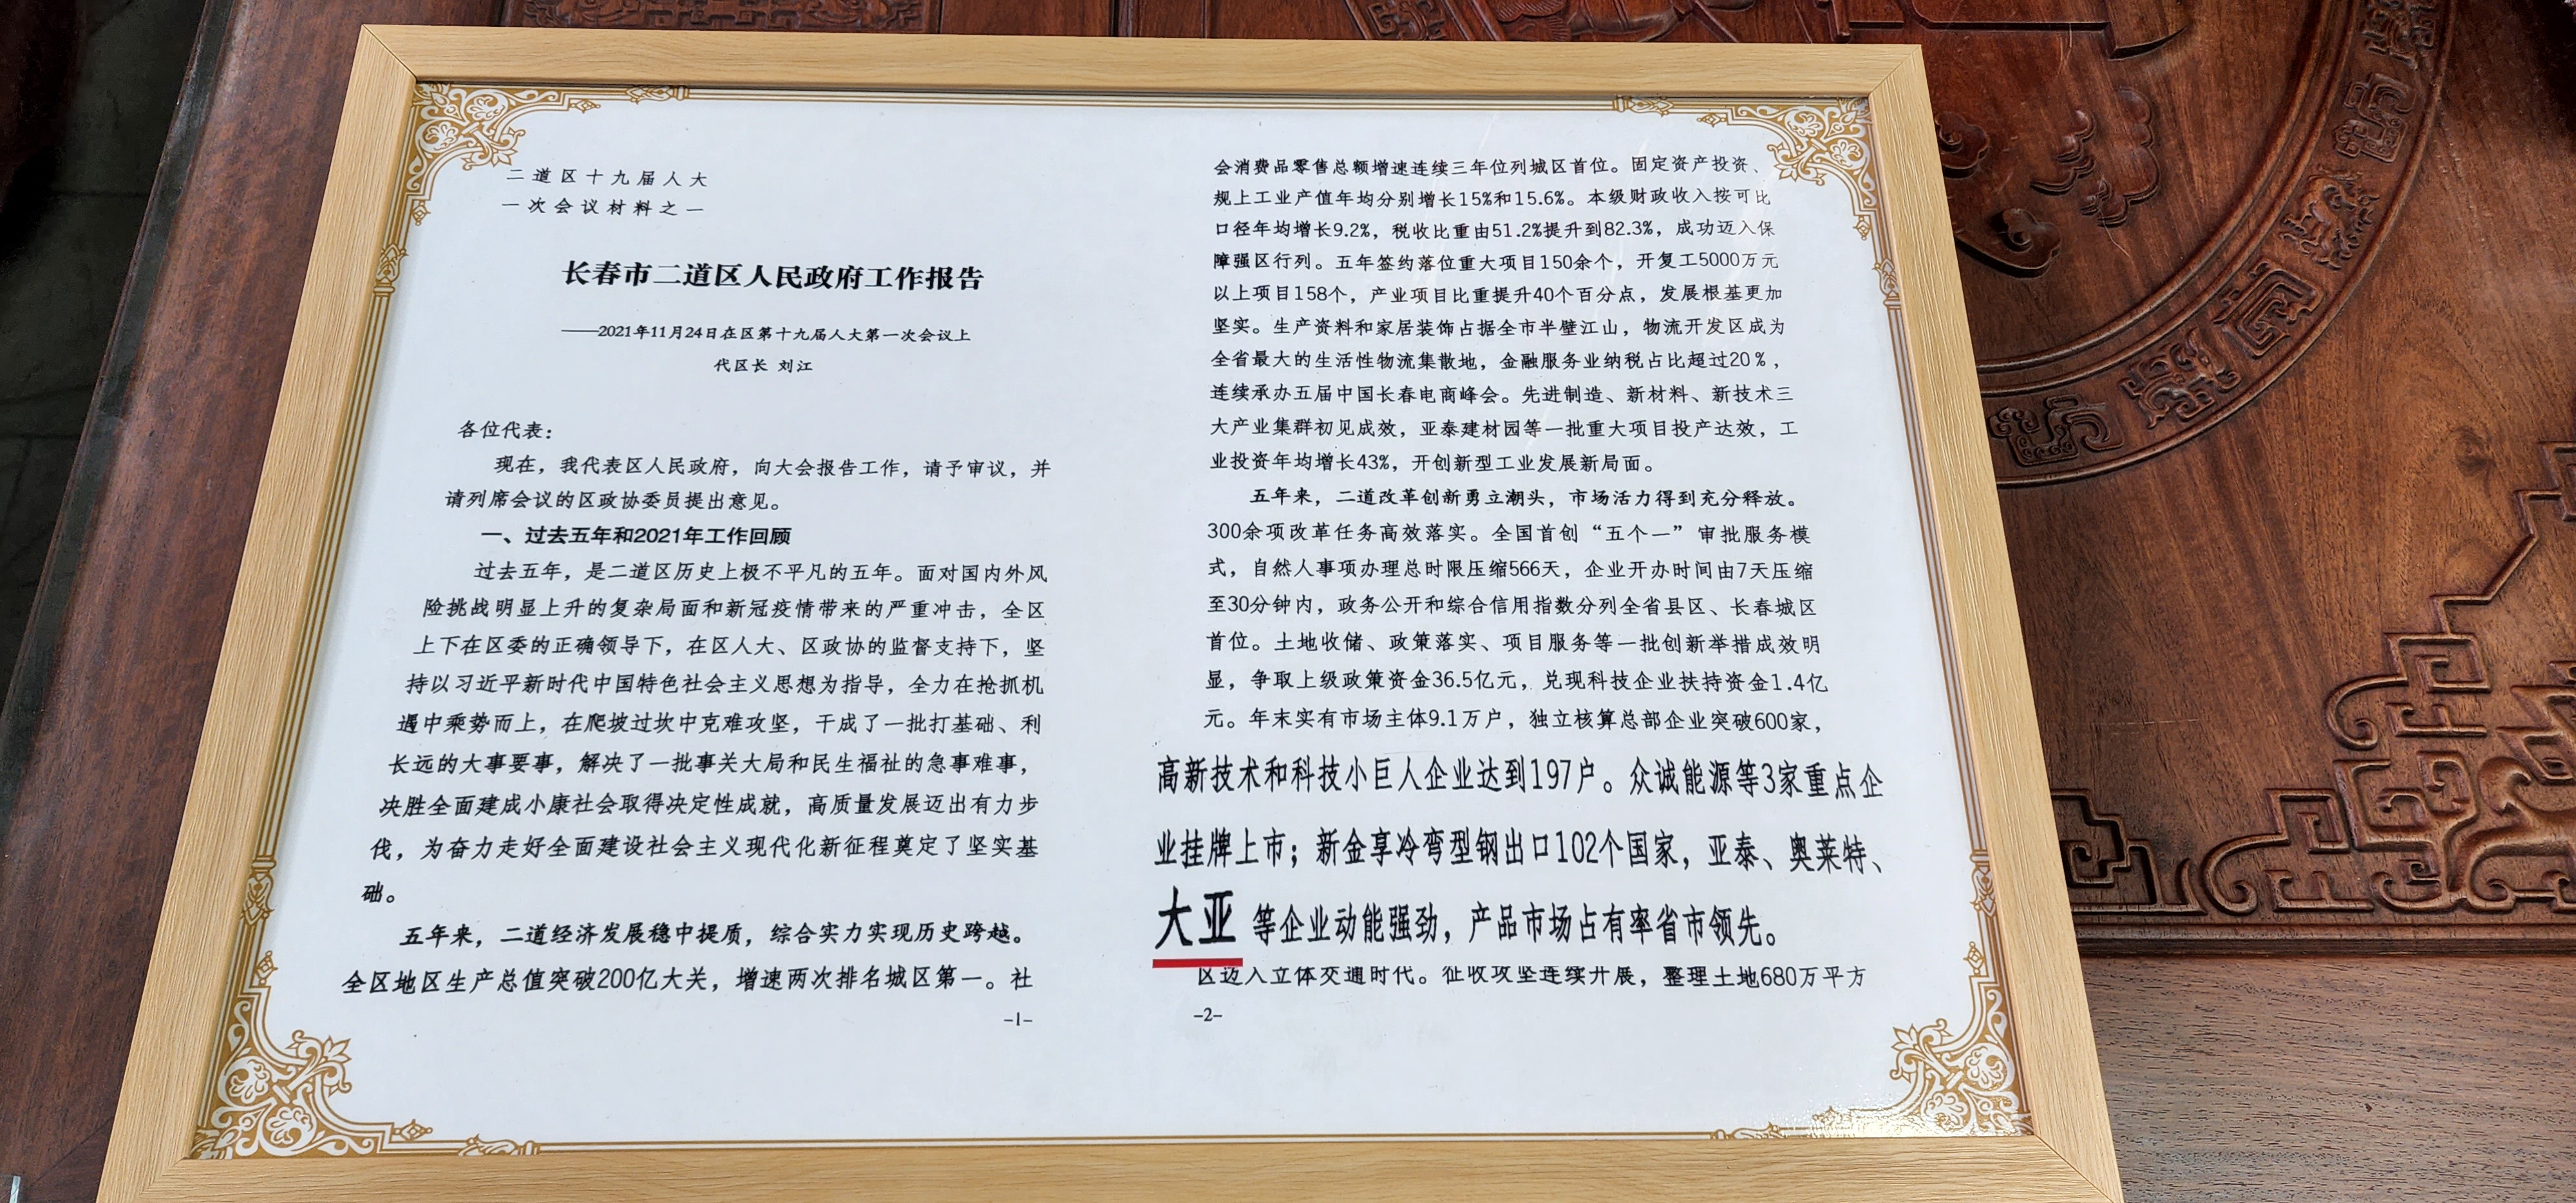 二道区十九届人大
一次会议材料之一
长春市二道区人民政府工作报告
——2021年11月24日在区第十九届人大第一次会议上
代区长 刘江
各位代表：
现在，我代表区人民政府，向大会报告工作，请予审议，并
请列席会议的区政协委员提出意见。
一、过去五年和2021年工作回顾
过去五年，是二道区历史上极不平凡的五年。面对国内外风
险挑战明显上升的复杂局面和新冠疫情带来的严重冲击，全区
上下在区委的正确领导下，在区人大、区政协的监督支持下，坚
持以习近平新时代中国特色社会主义思想为指导，全力在抢抓机
遇中乘势而上，在爬坡过坎中克难攻坚，干成了一批打基础、利
长远的大事要事，解决了一批事关大局和民生福祉的急事难事，
决胜全面建成小康社会取得决定性成就，高质量发展迈出有力步
伐，为奋力走好全面建设社会主义现代化新征程奠定了坚实基
础。
五年来，二道经济发展稳中提质，综合实力实现历史跨越。
全区地区生产总值突破200亿大关，增速两次排名城区第一。社
-1-
会消费品零售总额增速连续三年位列城区首位。固定资产投资、
规上工业产值年均分别增长15%和15.6%。本级财政收入按可比
口径年均增长9.2%，税收比重由51.2%提升到82.3%，成功迈入保
障强区行列。五年签约落位重大项目150余个，开复工5000万元
以上项目158个，产业项目比重提升40个百分点，发展根基更加
坚实。生产资料和家居装饰占据全市半壁江山，物流开发区成为
全省最大的生活性物流集散地，金融服务业纳税占比超过20%，
连续承办五届中国长春电商峰会。先进制造、新材料、新技术三
大产业集群初见成效，亚泰建材园等一批重大项目投产达效，工
业投资年均增长43%，开创新型工业发展新局面。
五年来，二道改革创新勇立潮头，市场活力得到充分释放。
300余项改革任务高效落实。全国首创“五个一”审批服务模
式，自然人事项办理总时限压缩566天，企业开办时间由7天压缩
至30分钟内，政务公开和综合信用指数分列全省县区、长春城区
首位。土地收储、政策落实、项目服务等一批创新举措成效明
显，争取上级政策资金36.5亿元，兑现科技企业扶持资金1.4亿
元。年末实有市场主体9.1万户，独立核算总部企业突破600家，
高新技术和科技小巨人企业达到197户。众诚能源等3家重点企
业挂牌上市；新金享冷弯型钢出口102个国家，亚泰、奥莱特、
大亚 等企业动能强劲，产品市场占有率省市领先。
区迈入立体交通时代。征收攻坚连续开展，整理土地680万平方
-2-